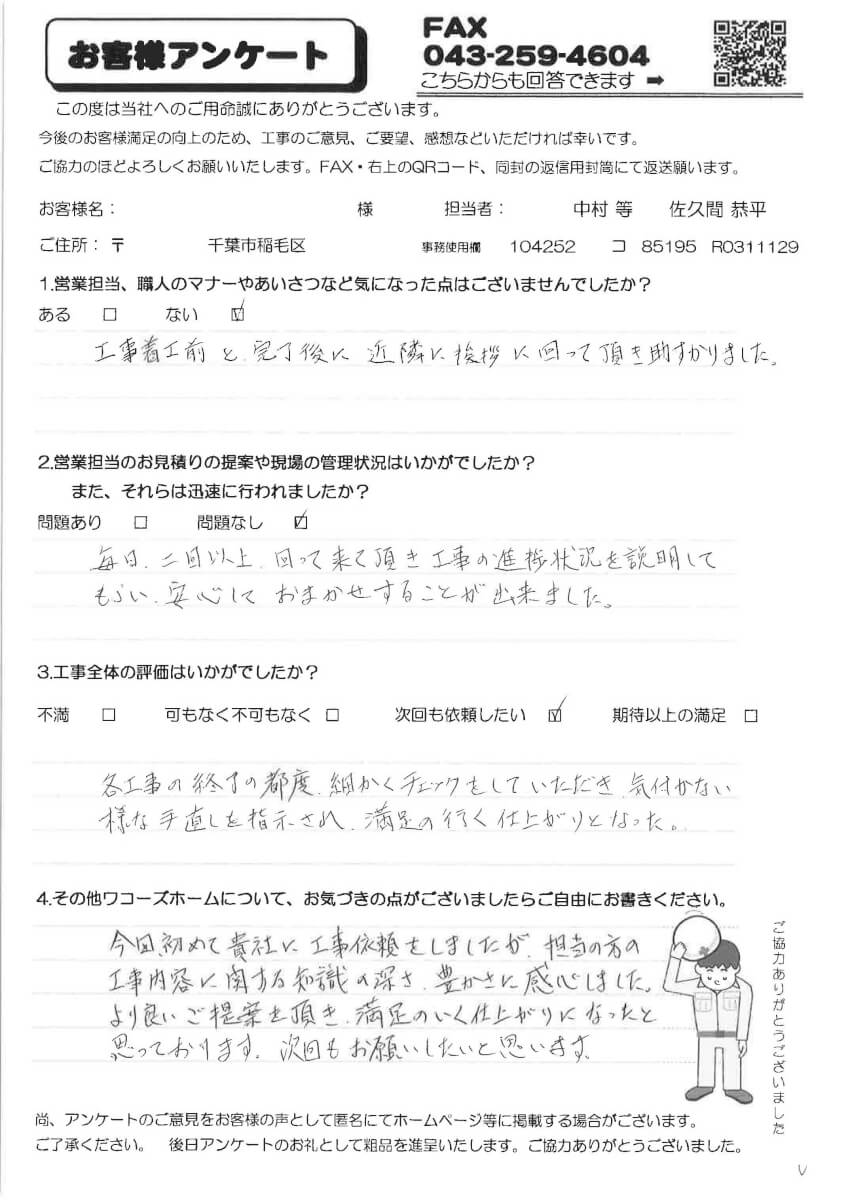 お客様アンケート
FAX
043-259-4604
こちらからも回答できます ➡
この度は当社へのご用命誠にありがとうございます。
今後のお客様満足の向上のため、工事のご意見、ご要望、感想などいただければ幸いです。
ご協力のほどよろしくお願いいたします。FAX・右上のQRコード、同封の返信用封筒にて返送願います。
お客様名： 様 担当者： 中村 等 佐久間 恭平
ご住所：〒 千葉市稲毛区 事務使用欄 104252 コ 85195 R0311129
1.営業担当、職人のマナーやあいさつなど気になった点はございませんでしたか？
ある □ ない ☑
工事着工前と、完了後に近隣に挨拶に回って頂き助すかりました。
2.営業担当のお見積りの提案や現場の管理状況はいかがでしたか？
また、それらは迅速に行われましたか？
問題あり □ 問題なし ☑
毎日、二回以上、回って来て頂き工事の進捗状況を説明して
もらい、安心しておまかせすることが出来ました。
3.工事全体の評価はいかがでしたか？
不満 □ 可もなく不可もなく □ 次回も依頼したい ☑ 期待以上の満足 □
各工事の終了の都度、細かくチェックをしていただき、気付かない
様な手直しを指示され、満足の行く仕上がりとなった。
4.その他ワコーズホームについて、お気づきの点がございましたらご自由にお書きください。
今回初めて貴社に工事依頼をしましたが、担当の方の
工事内容に関する知識の深さ、豊かさに感心しました。
より良いご提案を頂き、満足のいく仕上がりになったと
思っております。次回もお願いしたいと思います。
ご協力ありがとうございました
尚、アンケートのご意見をお客様の声として匿名にてホームページ等に掲載する場合がございます。
ご了承ください。 後日アンケートのお礼として粗品を進呈いたします。ご協力ありがとうございました。